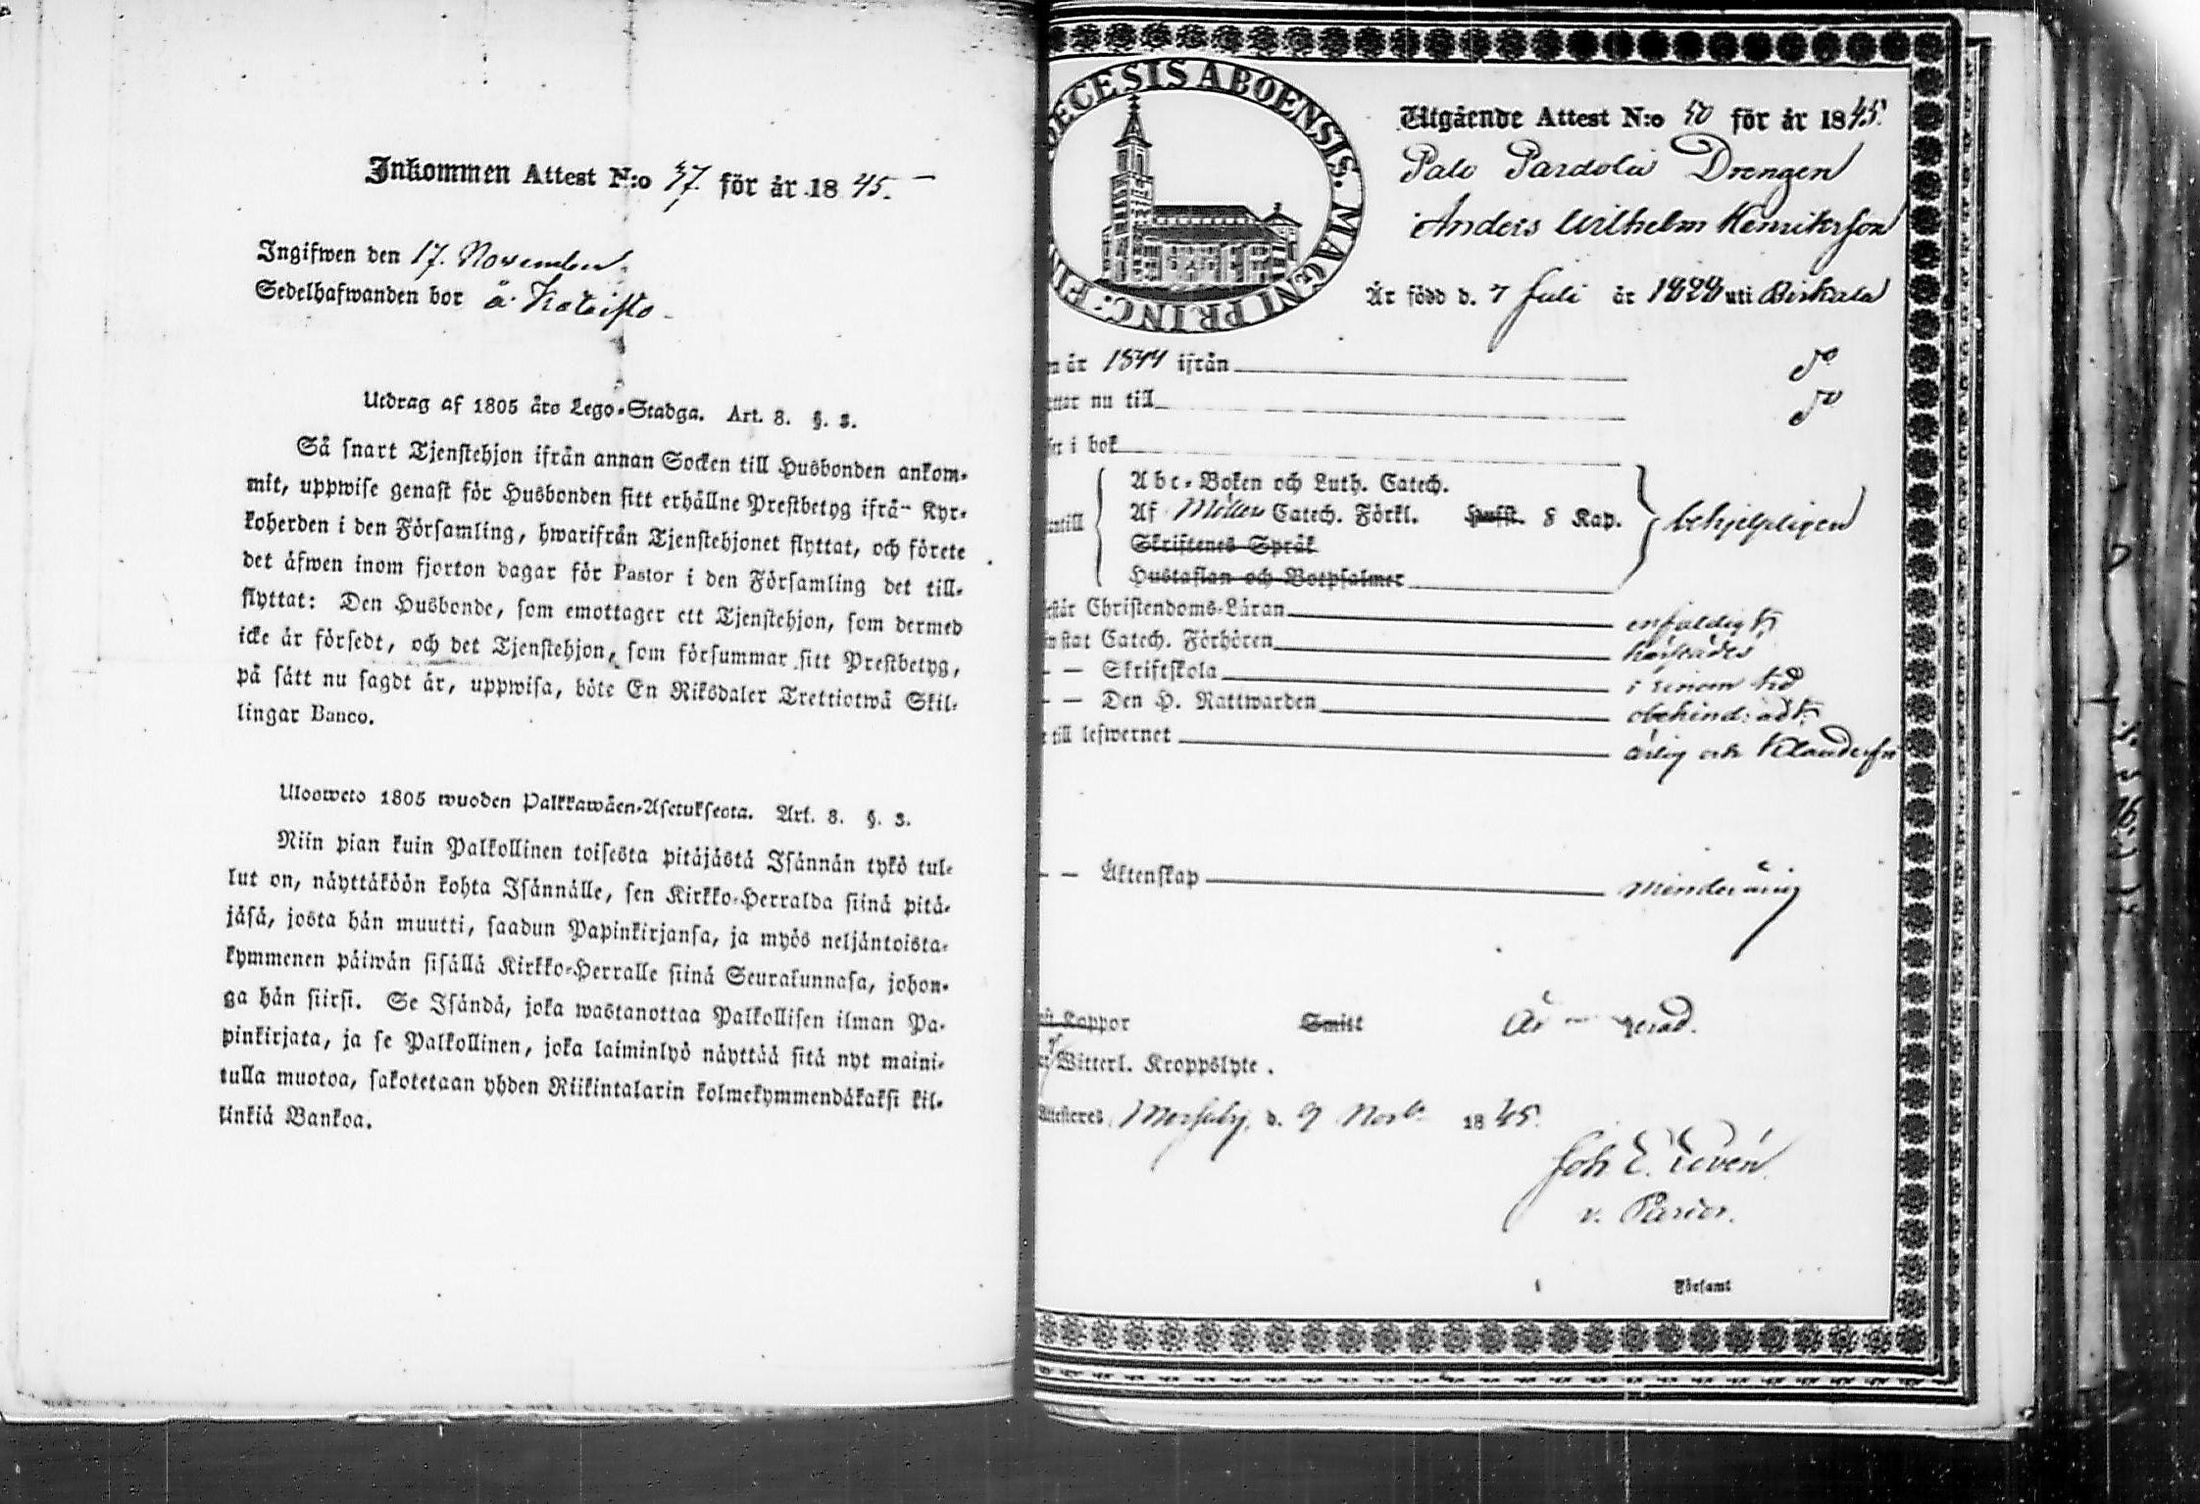 Inkommen Attest N:o 37. för år 1845.
Ingifwen den 17. November.
Sedelhafwanden bor å Kateisto
Utdrag af 1805 års Lego-Stadga. Art. 8. §. 3.
Så snart Tjenstehjon ifrån annan Socken till Husbonden ankom-
mit, uppwise genast för Husbonden sitt erhållne Prestbetyg ifrå- Kyr-
koherden i den Församling, hwarifrån Tjenstehjonet flyttat, och förete
det äfwen inom fjorton dagar för Pastor i den Församling det till-
flyttat: Den Husbonde, som emottager ett Tjenstehjon, som dermed
icke är försedt, och det Tjenstehjon, som försummar sitt Prestbetyg,
på sätt nu sagdt är, uppwisa, böte En Riksdaler Trettiotwå Skil-
lingar Banco.
Ulosweto 1805 wuoden Palkkawäen-Asetuksesta. Art. 8. §. 3.
Niin pian kuin Palkollinen toisesta pitäjästä Isännän tykö tul-
lut on, näyttäköön kohta Isännälle, sen Kirkko-Herralda siinä pitä-
jäsä, josta hän muutti, saadun Papinkirjansa, ja myös neljäntoista-
kymmenen päiwän sisällä Kirkko-Herralle siinä Seurakunnasa, johon-
ga hän siirsi. Se Isändä, joka wastanottaa Palkollisen ilman Pa-
pinkirjata, ja se Palkollinen, joka laiminlyö näyttää sitä nyt maini-
tulla muotoa, sakotetaan yhden Riikintalarin kolmekymmendäkaksi kil-
linkiä Bankoa.
ŒCESIS ABOENSIS. MAGNI PRINC: FIN
Utgående Attest N:o 50 för år 1845.
Palo Pardola Drengen
Anders Wilhelm Henriksson
Är född d. 7 Juli år 1828 uti Birkala
n år 1844 ifrån d:o
ttar nu till d:o
ser i bok
Abc-Boken och Luth. Catech.
entill Af Möllers Catech. Förkl. Husst. 8 Kap. behjelpligen
Skriftenes Språk
Hustaflan och Botpsalmer
står Christendoms-Läran enfaldigt
wistat Catech. Förhören härstädes
- — Skriftskola i sinom tid
- — Den H. Nattwarden obehindradt
till lefwernet ärlig och klanderfri
- — Äktenskap minderårig
st. Kappor Smitt Är
Witterl. Kroppslyte.
Attesteras Messuby d. 9 Novb. 1845.
Joh E. Levén
v. Pastor.
Församl